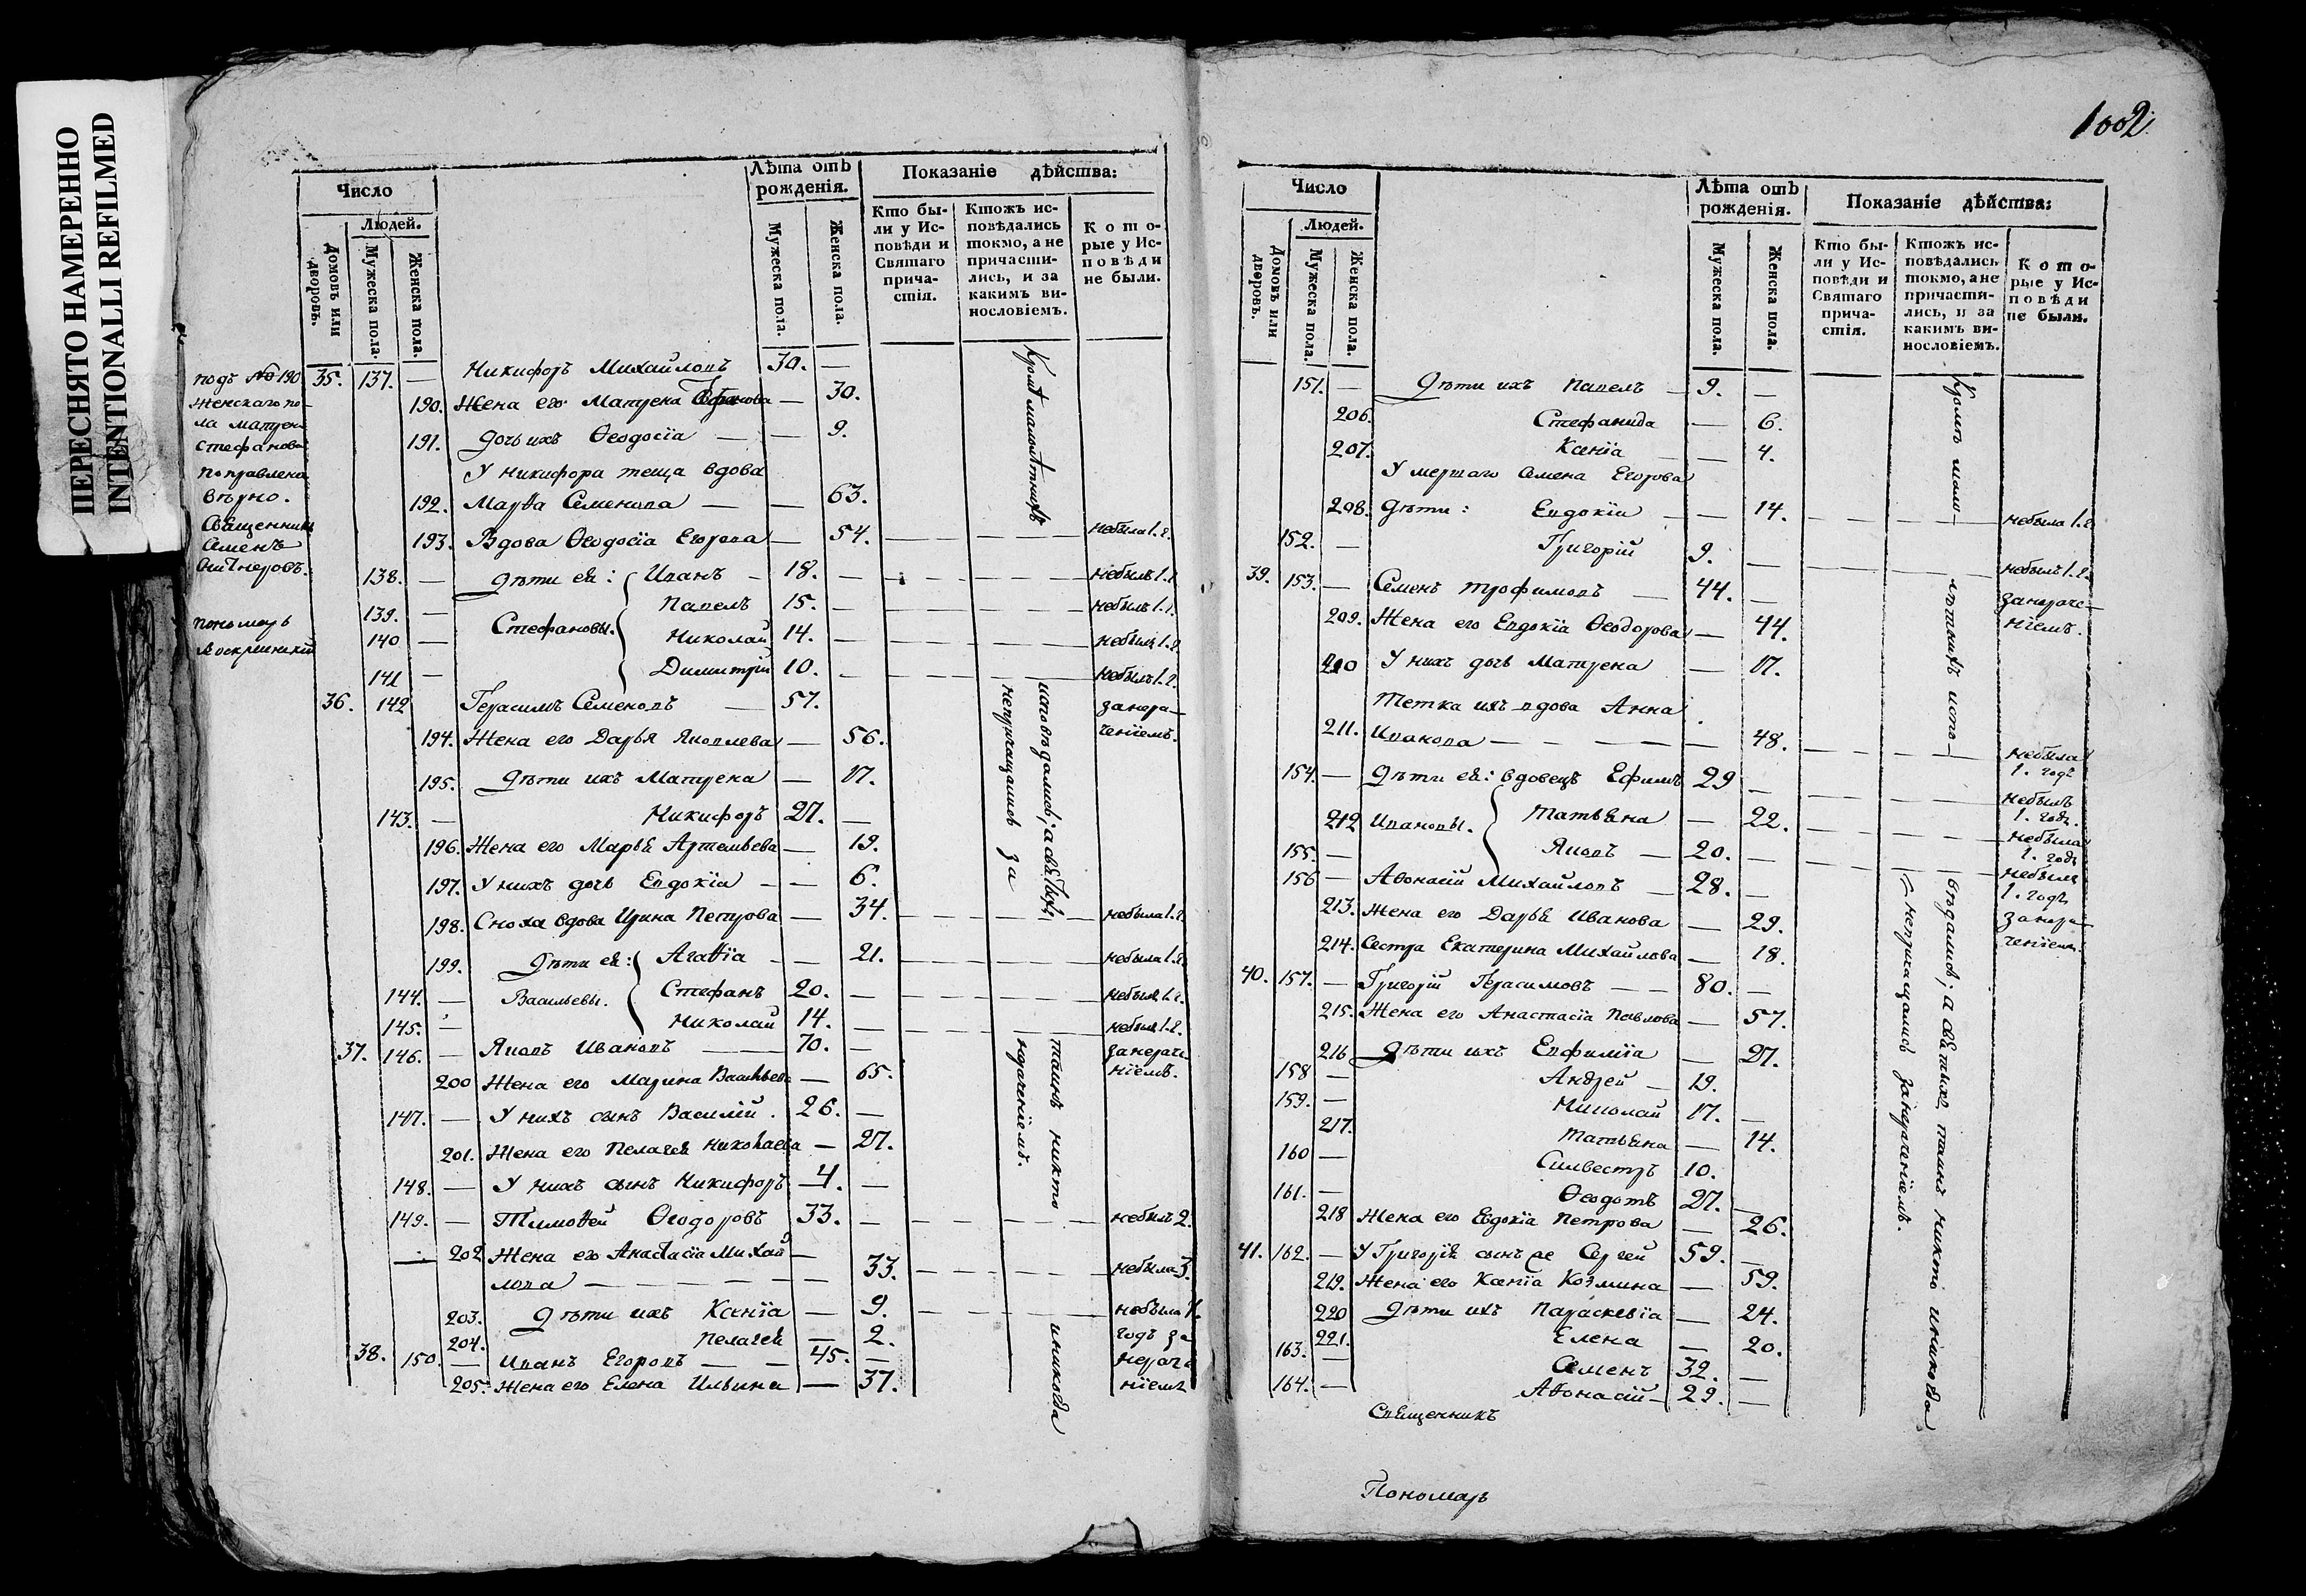 ПЕРЕСНЯТО НАМЕРЕННО
INTENTIONALLI REFILMED
Число
Людей.
Домовъ или дворовъ.
Мужеска пола.
Женска пола.
Лѣта отъ рожденія.
Мужеска пола.
Женска пола.
Показаніе дѣйства:
Кто были у Исповѣди и Святаго причастія.
Ктожъ исповѣдались токмо, а не причастились, и за какимъ винословіемъ.
Которые у Исповѣди не были.
подъ № 190
Женскаго по-
ла матрен
Стефанова
поправлена
вѣрно.
Священникъ
Семенъ
пономарь
35. 137. — Никифоръ Михайловъ 30. —
190. Жена его Матрена — 30.
191. Дочь ихъ Ѳеодосіа — — 9.
У никифора теща вдова
192. Марѳа Семенова — — 63.
193. Вдова Ѳеодосіа Егорова — 54. небыла 1. г.
138. — Дѣти ея: Иванъ — 18. — небылъ 1. г.
139. — Стефановы. Павелъ 15. — небылъ 1. г.
140 — Николай 14. — небылъ 1. г.
141 — Димитрій 10. — небылъ 1. г.
36. 142 Герасимъ Семеновъ — 57. занера-
194. Жена его Дарья Яковлева — 56. ченіемъ.
195. Дѣти ихъ Матрена — 17.
143. — Никифоръ 27. —
196. Жена его Марья Артемьева — 19.
197. У нихъ дочь Евдокіа — — 6.
198. Сноха вдова Ирина Петрова — 34. небыла 1. г.
199. Дѣти ея: Агаѳіа — — 21. небыла 1. г.
144. — Васильевы. Стефанъ 20. — небылъ 1. г.
145. — Николай 14. — небылъ 1. г.
37. 146. — Яковъ Ивановъ — 70. — занераче
200 Жена его Марина Васильева — 65. ніемъ.
147. — У нихъ сынъ Василій. 26. —
201. Жена его Пелагея Николаева — 27.
148. — У нихъ сынъ Никифоръ 4. —
149. — Тимоѳей Ѳеодоровъ 33. — небылъ 2.
— 202. Жена его Анастасіа Михай —
лова — 33. небыла 3.
203. Дѣти ихъ Ксеніа — 9. небыла 1.
204. Пелагея — 2. годъ за
38. 150. — Иванъ Егоровъ — — 45. — нераче
205. Жена его Елена Ильина — 37. ніемъ
Кромѣ малолѣтнихъ
исповѣдались; а святыхъ
непричащались за
таинъ никто
нераченіемъ.
иникогда
1002
Число
Людей.
Домовъ или дворовъ.
Мужеска пола.
Женска пола.
Лѣта отъ рожденія.
Мужеска пола.
Женска пола.
Показаніе дѣйства:
Кто были у Исповѣди и Святаго причастія.
Ктожъ исповѣдались токмо, а не причастились, и за какимъ винословіемъ.
Которые у Исповѣди не были.
151. — Дѣти ихъ Павелъ — 9. —
206. Стефанида — 6.
207. Ксеніа — — 4.
Умершаго Семена Егорова
208. Дѣти: Евдокіа — — 14. небыла 1. г.
152. — Григорій 9. — небылъ 1. г.
39. 153. — Семенъ Трофимовъ — 44. — занераче-
209. Жена его Евдокіа Ѳеодорова — 44. ніемъ.
210 У нихъ дочь Матрена — 17.
Тетка ихъ вдова Анна
211. Иванова — — — 48. небыла
1. годъ
154. — Дѣти ея: вдовецъ Ефимъ 29 — небылъ
1. годъ.
212 Ивановы. Татьяна — 22. небыла
1. годъ
155. — Яковъ — 20. — небылъ
1. годъ
156 — Аѳонасій Михайловъ — 28. —
213. Жена его Дарья Иванова — 29. занера-
214. Сестра Екатерина Михайлова — 18. ченіемъ.
40. 157. — Григорій Герасимовъ — — 80. —
215. Жена его Анастасіа Павлова — 57.
216 Дѣти ихъ Евфиміа — 27.
158 — Андрей — 19.
159. — Николай 17. —
217. Татьяна — 14.
160 — Сильвестръ 10.
161. — Ѳеодотъ 27. —
218 Жена его Евдокіа Петрова — 26.
41. 162. — У Григорія сынъ Сергей 59. —
219. Жена его Ксеніа Козмина — 59.
220 Дѣти ихъ Параскевіа — 24.
221. Елена — 20.
163. — Семенъ 32. —
164. — Аѳонасій — 29. —
Кромѣ мало-
лѣтнихъ испо-
вѣдались; а святыхъ таинъ никто иникогда
непричащались занераченіемъ.
Священникъ
Пономарь